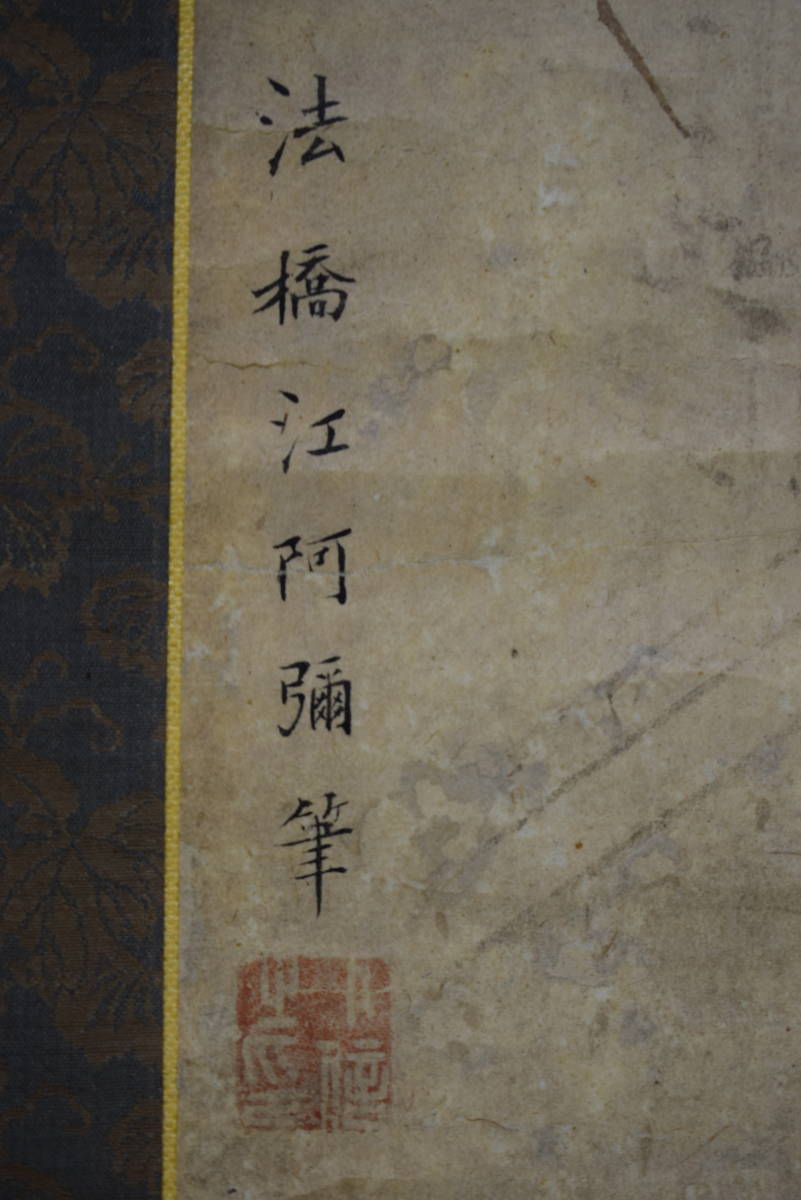 法橋江阿彌筆